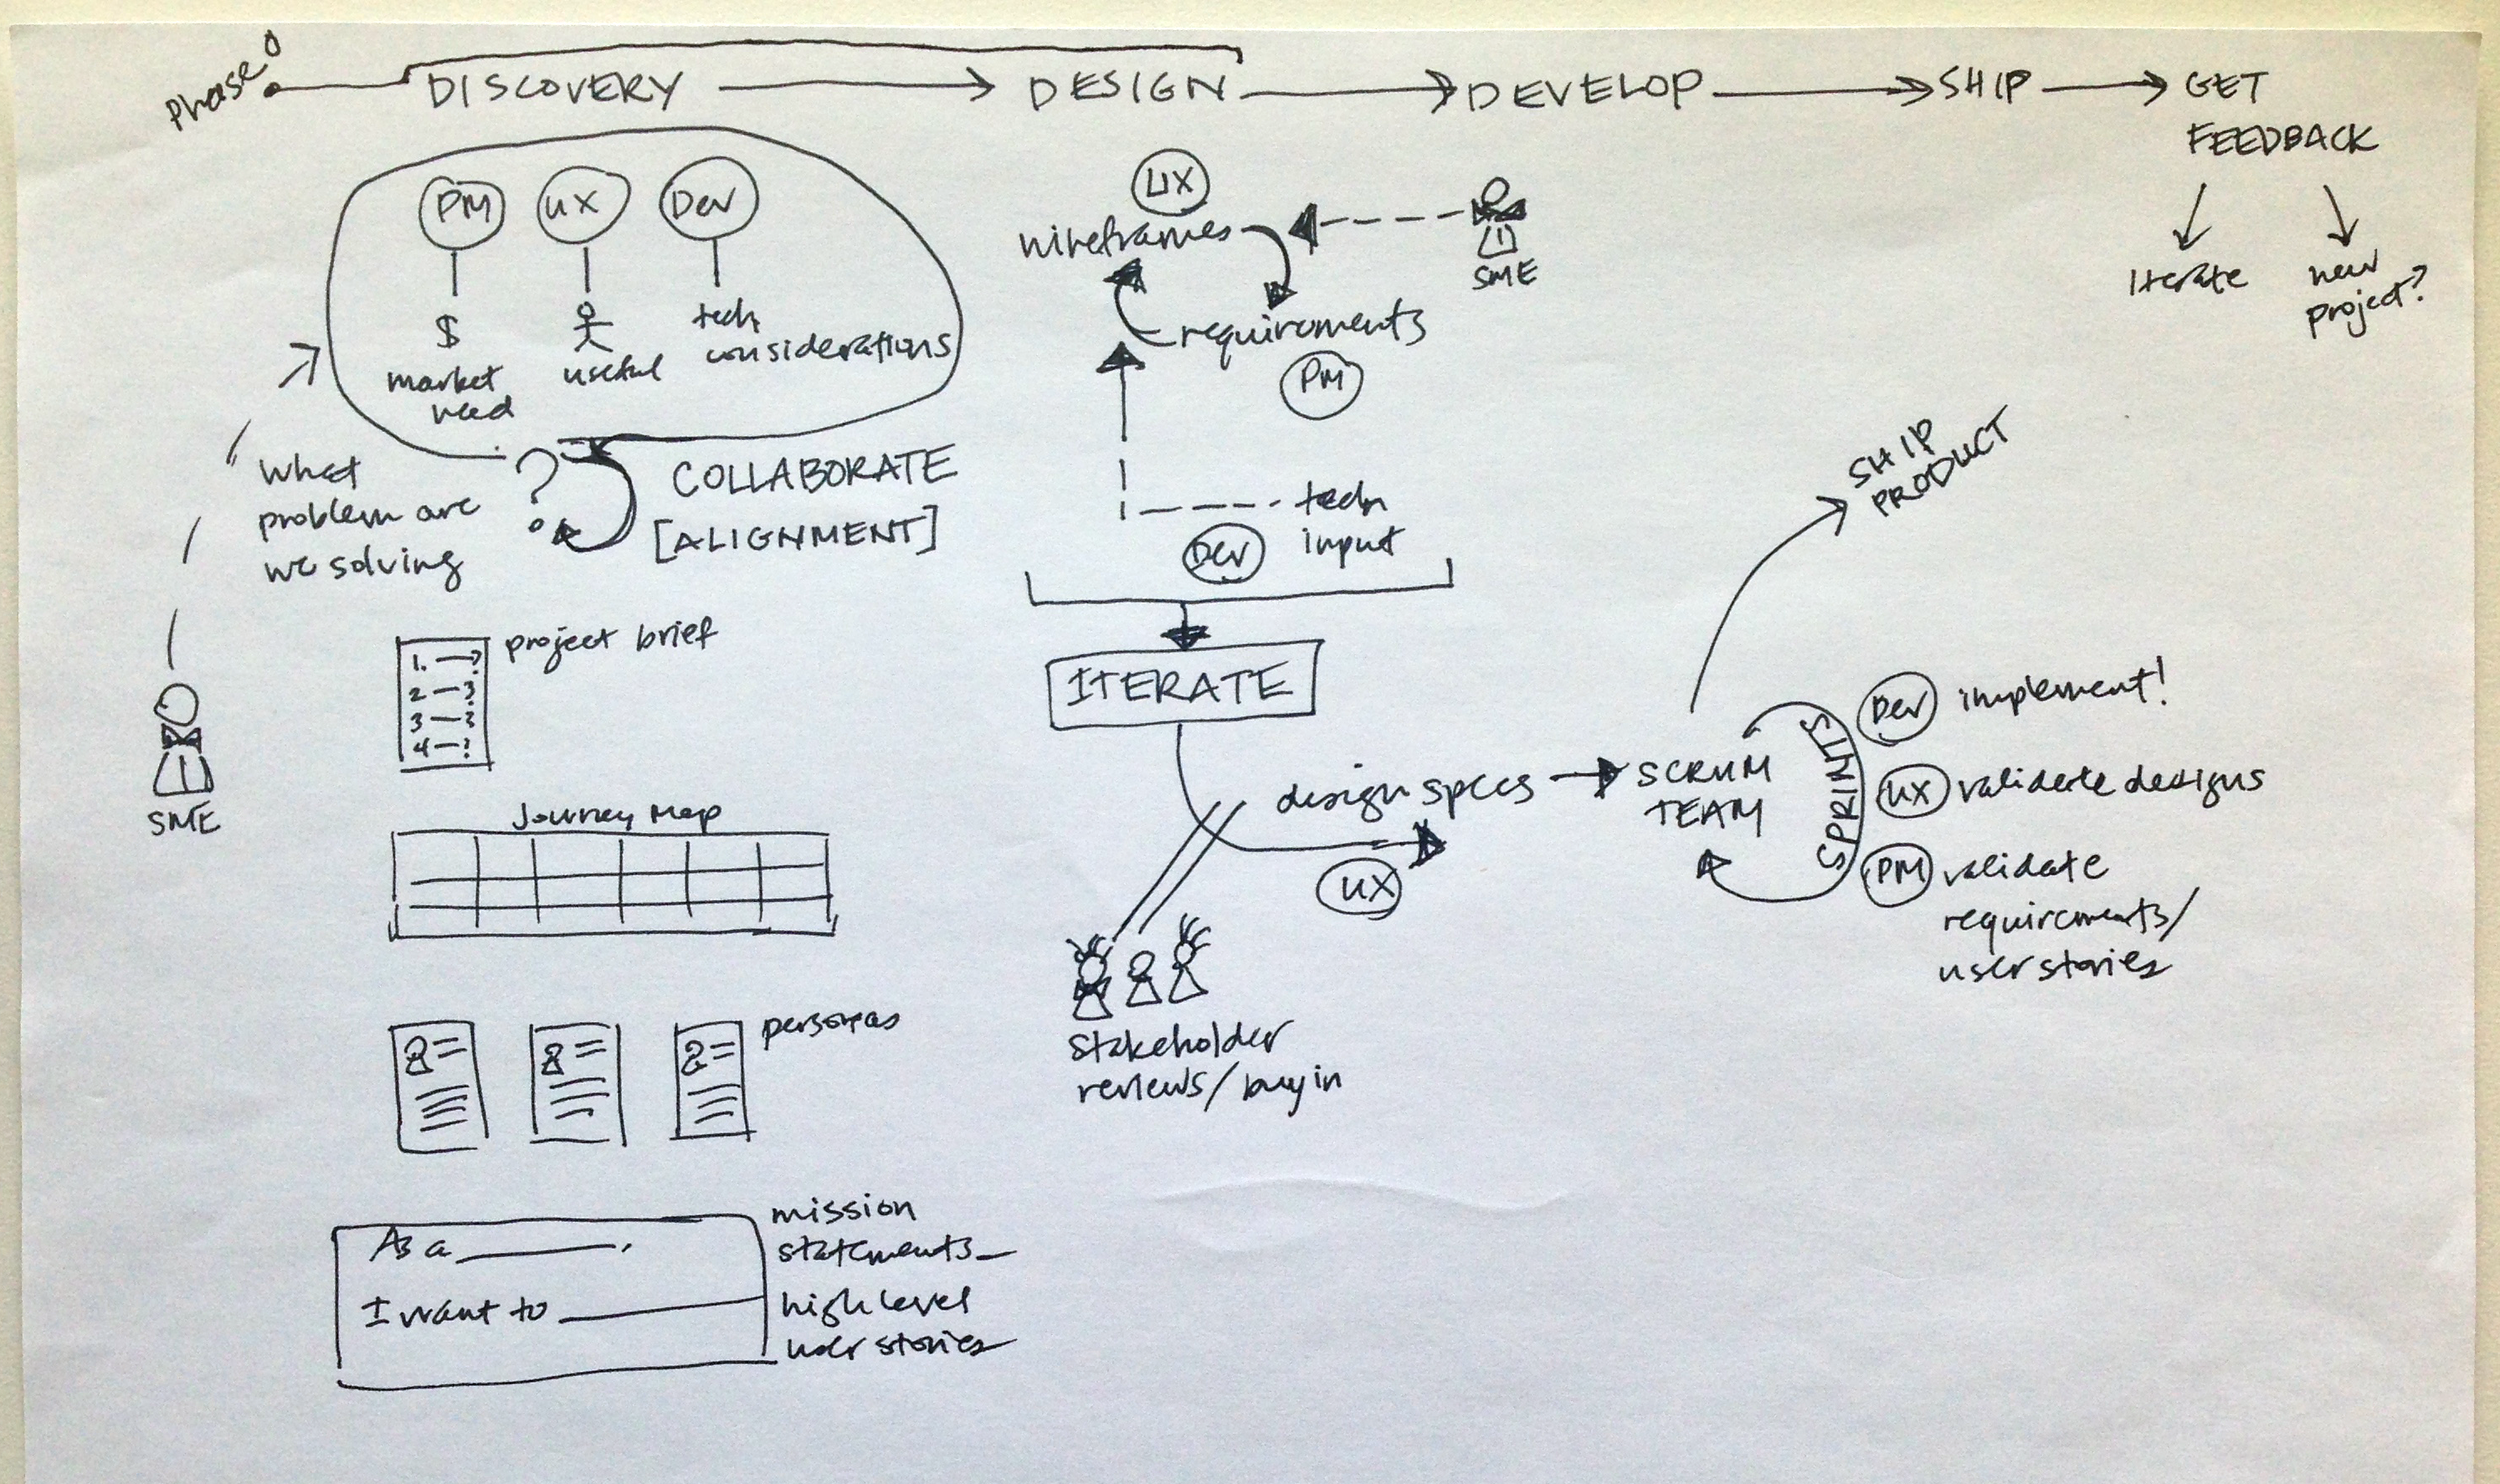 Phase 0
DISCOVERY
DESIGN
DEVELOP
SHIP
GET
FEEDBACK
Iterate
new
project?
PM
UX
Dev
$
market
need
useful
tech
considerations
What
problem are
we solving
?
COLLABORATE
[ALIGNMENT]
SME
project brief
1. —?
2 —?
3 —?
4 —?
Journey Map
personas
As a ________,
I want to ________
mission
statements
high level
user stories
UX
wireframes
SME
requirements
PM
tech
input
Dev
ITERATE
design specs
UX
stakeholder
reviews/buy in
SCRUM
TEAM
SPRINTS
SHIP
PRODUCT
Dev implement!
UX validate designs
PM validate
requirements/
user stories